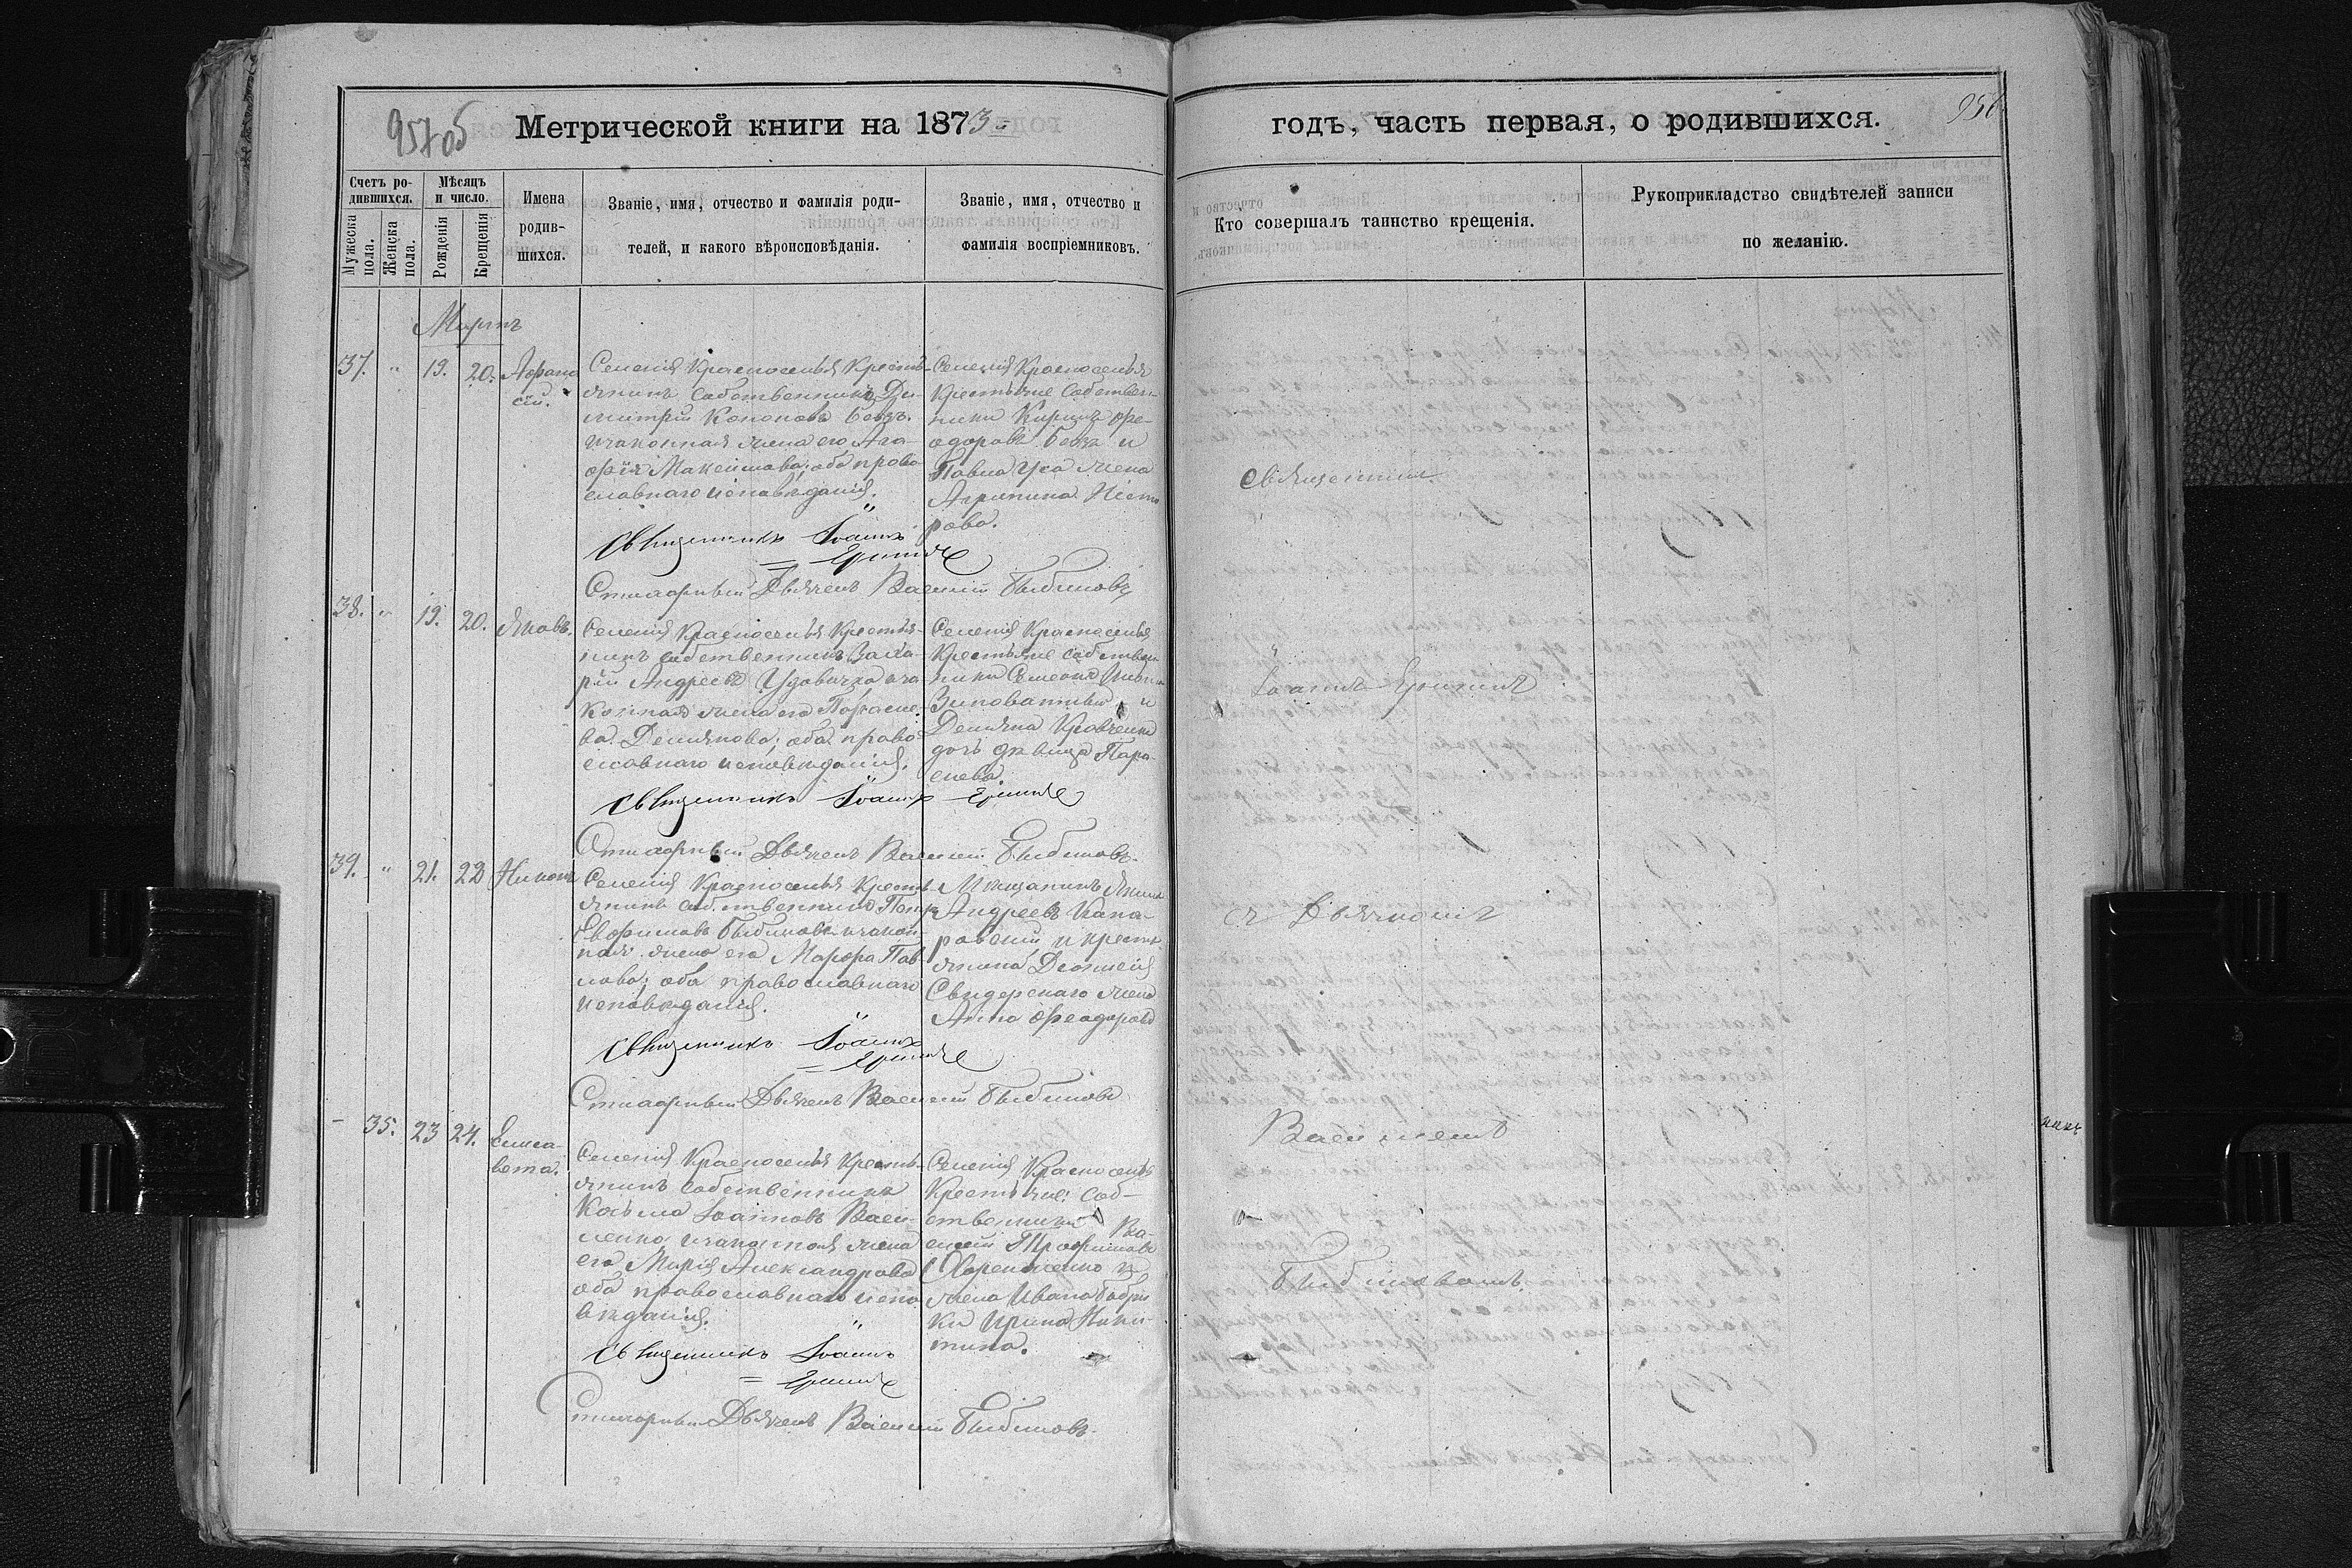 957 об
Метрической книги на 1873
годъ, часть первая, о родившихся.
956
Счетъ ро-
дившихся.
Мужеска
пола.
Женска
пола.
Мѣсяцъ
и число.
Рожденія
Крещенія
Имена
родив-
шихся.
Званіе, имя, отчество и фамилія роди-
телей, и какого вѣроисповѣданія.
Званіе, имя, отчество и
фамилія воспріемниковъ.
Кто совершалъ таинство крещенія.
Рукоприкладство свидѣтелей записи
по желанію.
Мартъ
37. " 19. 20. Афана
сій.
Селенія Красноселья Кресть-
янинъ собственникъ Ди-
митрій Кононовъ
изаконная жена его Ага-
фія Максимова; оба право
славнаго исповѣданія.
Селенія Красноселья
Крестьяне собствен-
ники Кирилъ Фе-
одоровъ и
Павла Уса жена
Агрипина Несто
рова.
Священникъ Іоаннъ
Стихарный Дьячекъ Василій Бибиковъ
38. " 19. 20. Яковъ.
Селенія Красноселья Крестья-
нинъ собственникъ Заха-
рій Андреевъ иза
конная жена его Параске-
ва Демьянова; оба право
славнаго исповѣданія.
Селенія Красноселья
Крестьяне собствен
ники Симеонъ
и
Демьяна Кравченка
дочь дѣвица Пара-
скева
Священникъ Іоаннъ
Стихарный Дьячекъ Василій Бибиковъ.
39. " 21. 22 Никонъ
Селенія Красноселья Кресть-
янинъ собственникъ Петръ
Евфимовъ Бибиковъ изакон-
ная жена его Марфа Пав-
лова; оба православнаго
исповѣданія.
Мѣщанинъ
Андреевъ
и кресть-
янина
Свидерскаго жена
Анна Феодорова
Священникъ Іоаннъ
Стихарный Дьячекъ Василій Бибиковъ
- 35. 23 24. Елиса-
вета.
Селенія Красноселья Кресть-
янинъ собственникъ
Косьма Іоанновъ Васи-
ленко изаконная жена
его Марія Александрова
оба православнаго испо
вѣданія.
Селенія Красноселья
Крестьяне соб-
ственники Ва-
силій Трофимовъ
и
жена Ивана Бобри
ка Ирина Ники-
тина.
Священникъ Іоаннъ
Стихарный Дьячекъ Василій Бибиковъ.
Священникъ
Іоаннъ
съ Дьячкомъ
Василіемъ
Бибиковымъ